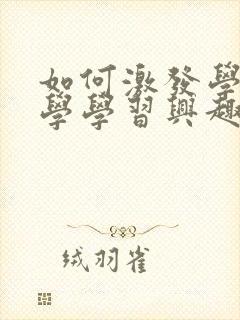 如何激發學
學學習興趣
绒羽雀